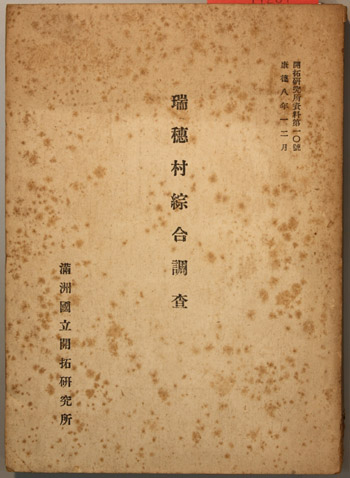 開拓研究所資料第一〇號
康德八年一二月
瑞穗村綜合調查
滿洲國立開拓研究所